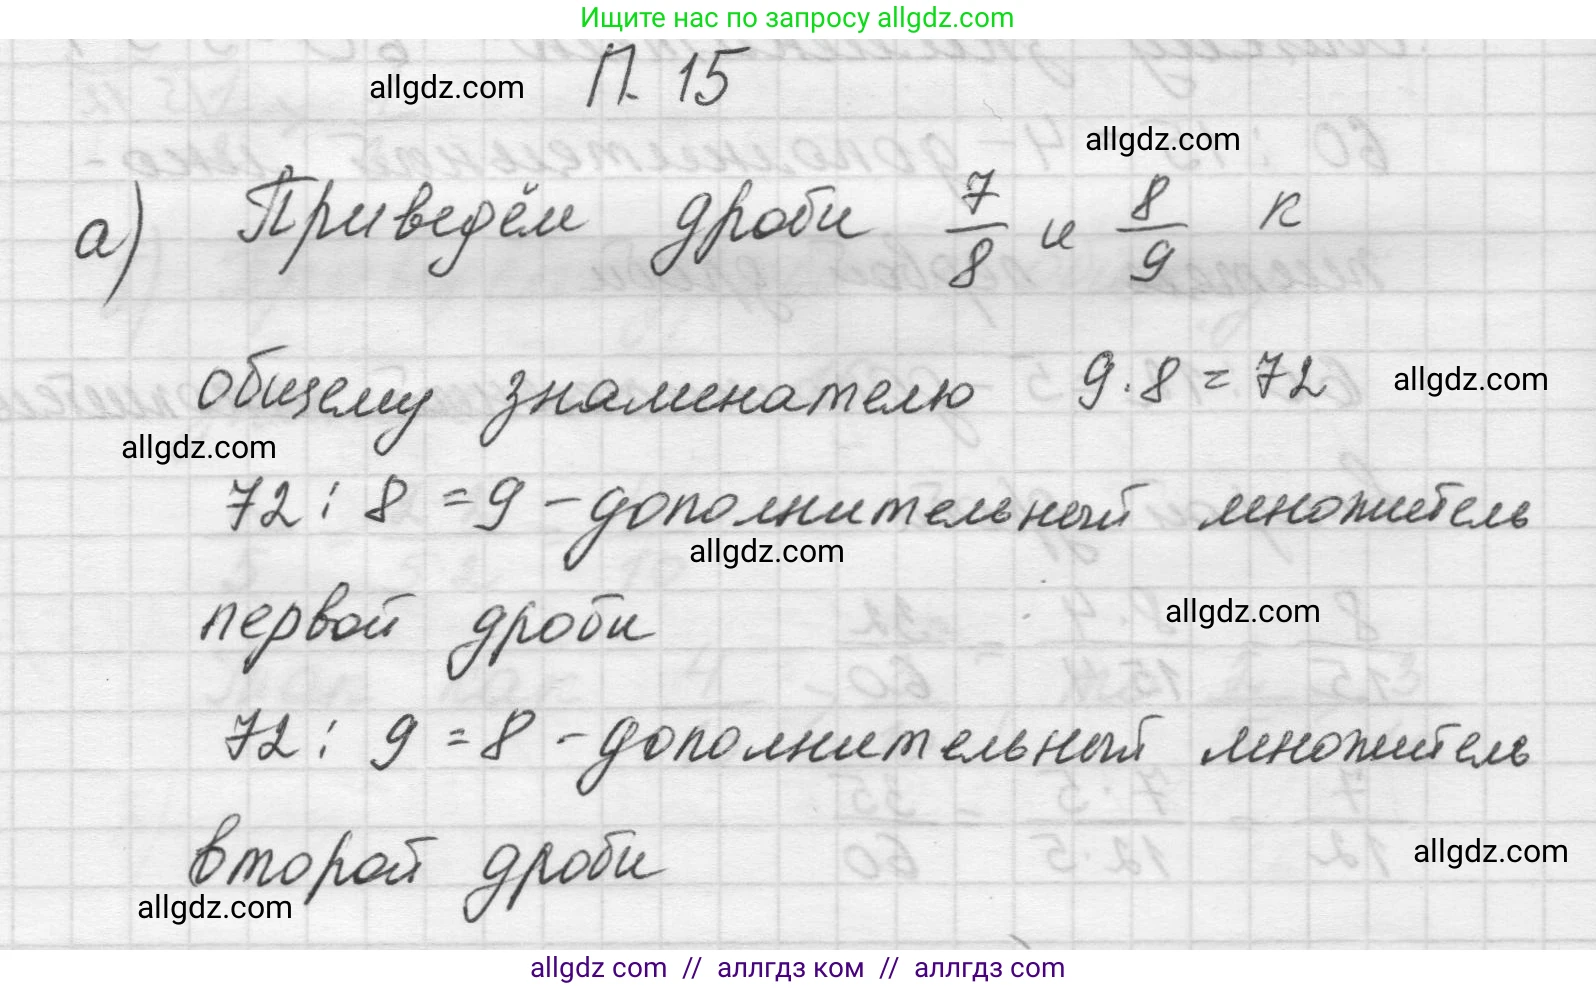 Ищите нас по запросу allgdz.com
П. 15
allgdz.com
allgdz.com
а) Приведём дроби 7/8 и 8/9 к
общему знаменателю 9·8=72
allgdz.com
allgdz.com
72 : 8 = 9 – дополнительный множитель
allgdz.com
первой дроби
allgdz.com
72 : 9 = 8 – дополнительный множитель
второй дроби
allgdz.com
allgdz.com
allgdz com // аллгдз ком // аллгдз com